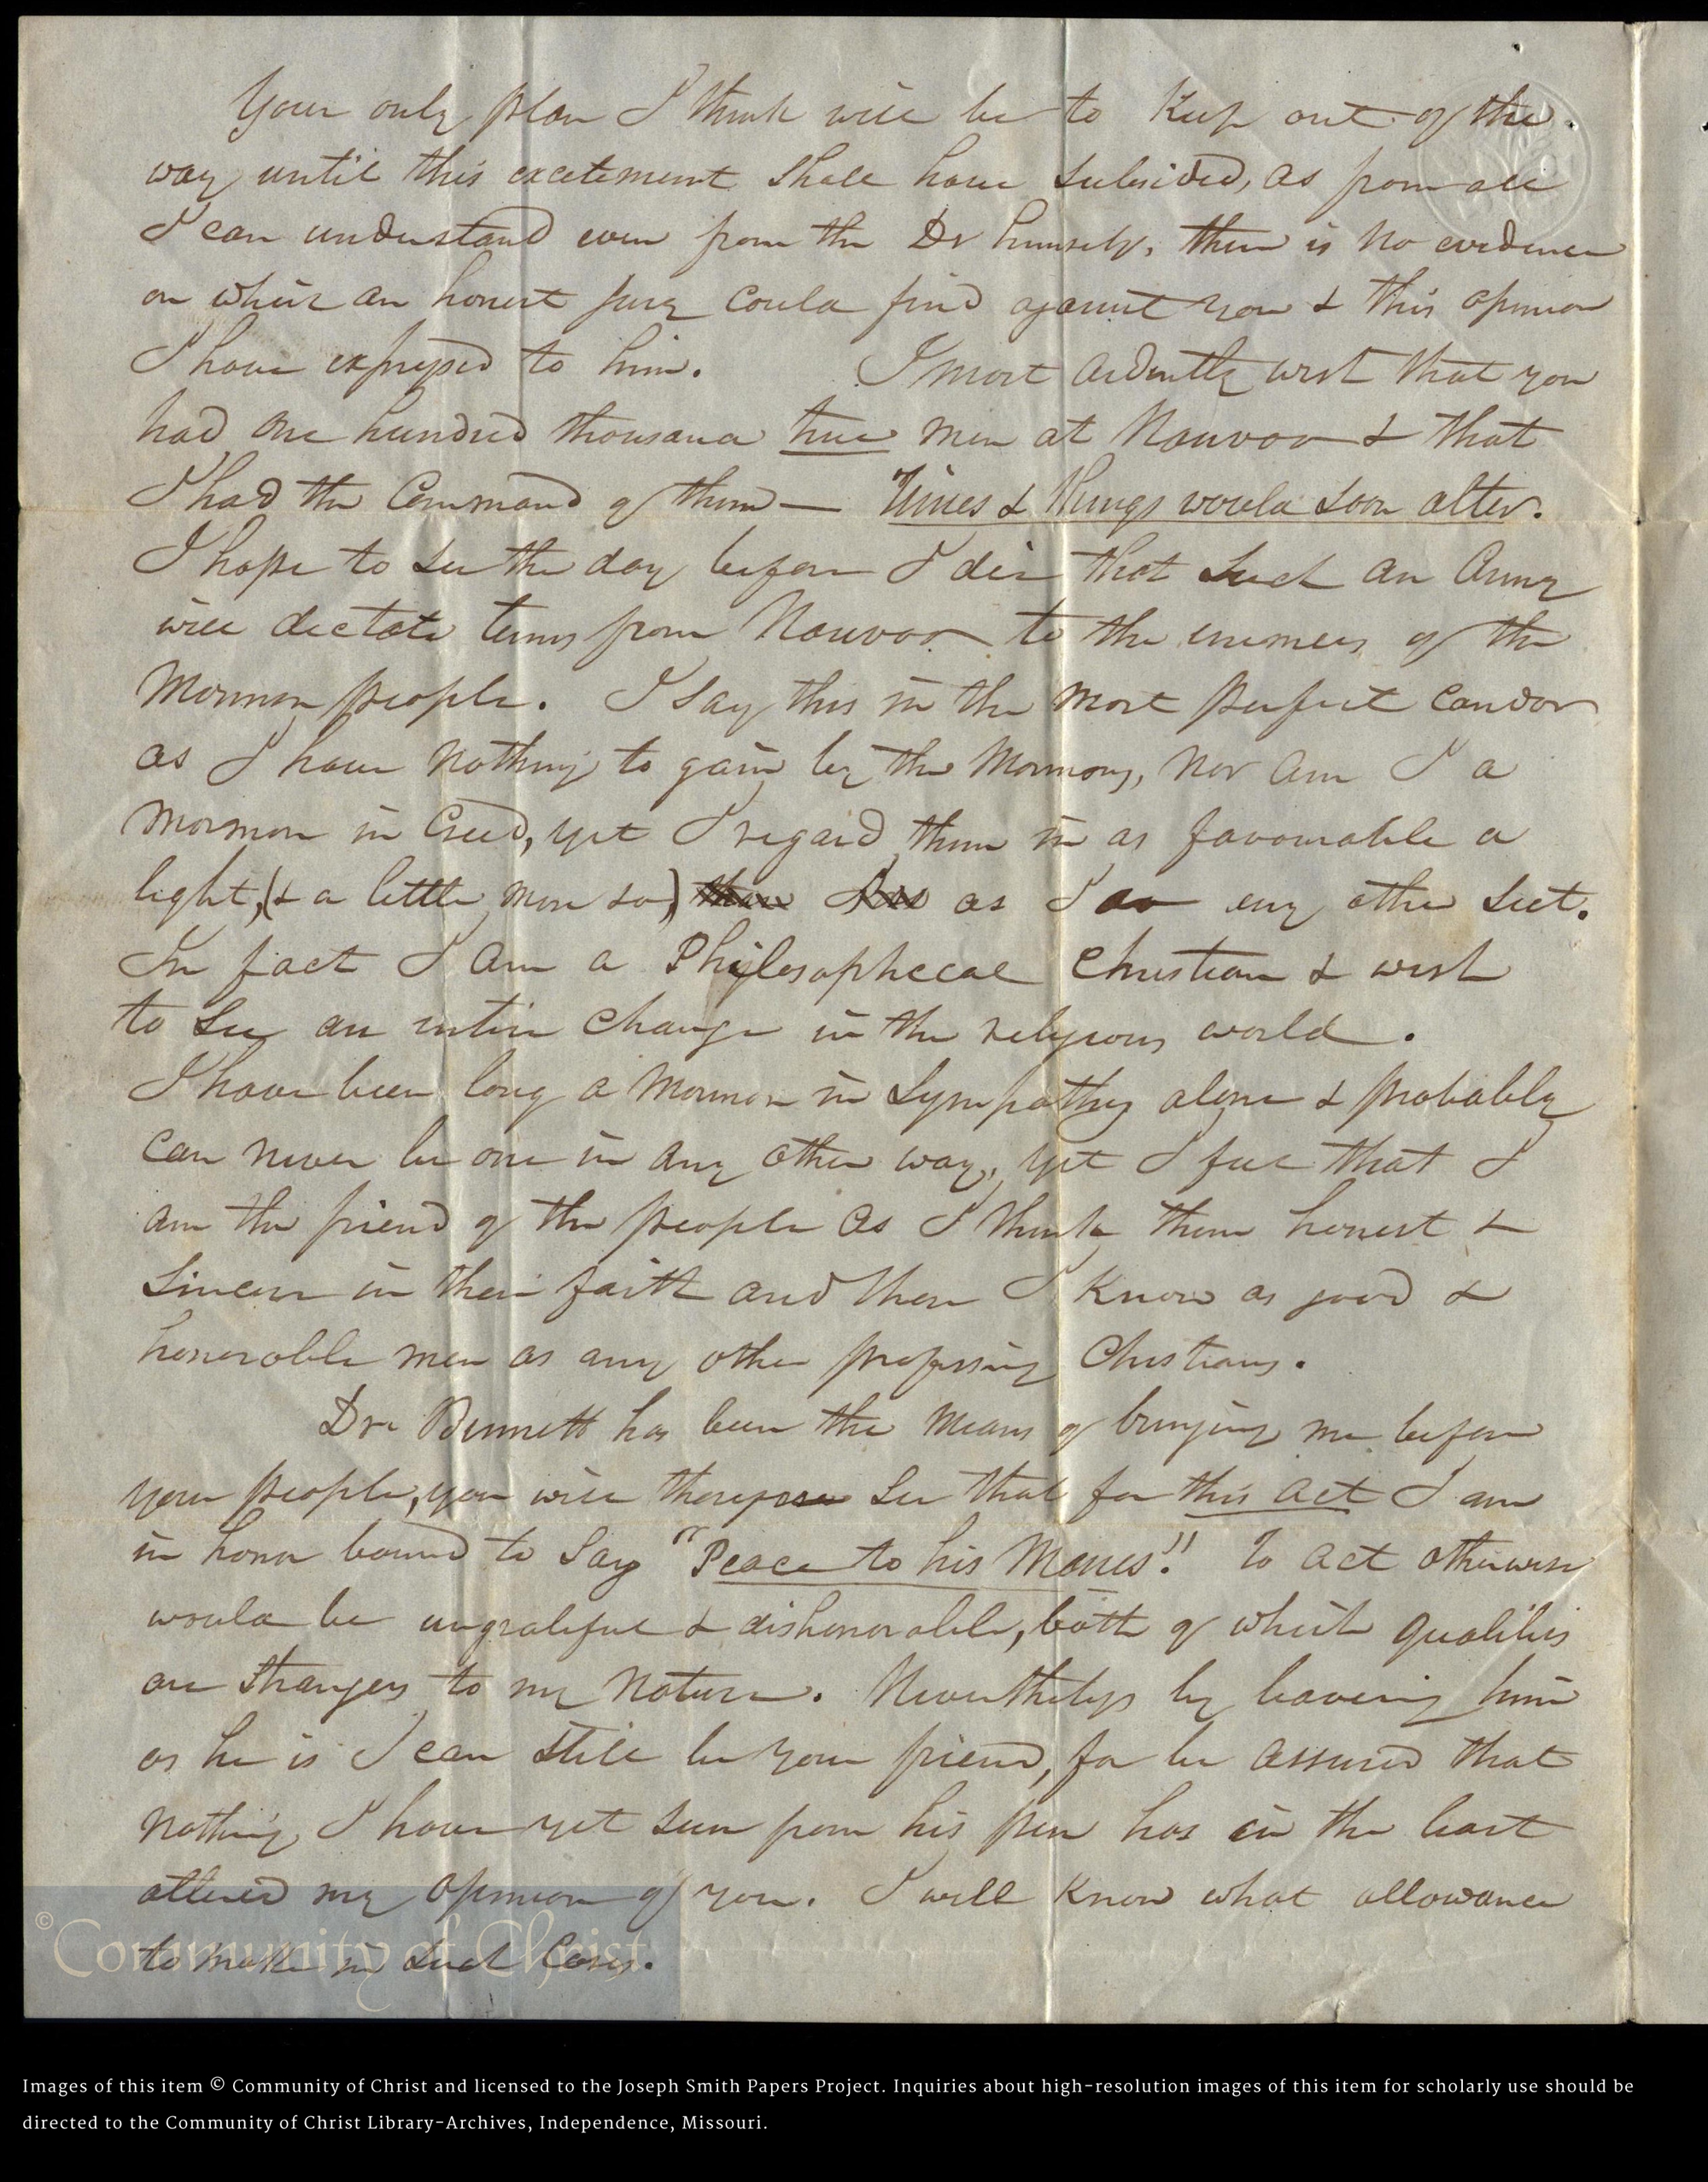 Your only plan I think will be to Keep out of the
way until this excitement shall have subsided, as from all
I can understand even from the Dr himself, there is no evidence
on which an honest jury could find against you & this opinion
I have expressed to him. I most ardently wish that you
had one hundred thousand true men at Nauvoo & that
I had the Command of them — Times & things would soon alter.
I hope to see the day before I die that such an Army
will dictate terms from Nauvoo to the enemies of the
Mormon people. I say this in the most perfect candor
as I have nothing to gain by the Mormons, nor am I a
Mormon in Creed, yet I regard them in as favourable a
light, (& a little more so) than as I do any other sect.
In fact I am a Philosophical Christian & wish
to see an entire change in the religious world.
I have been long a Mormon in Sympathy alone & probably
can never be one in any other way, yet I feel that I
am the friend of the people as I think them honest &
sincere in their faith and those I know as good &
honorable men as any other professing Christians.
Dr. Bennett has been the means of bringing me before
your people, you will therefore see that for this act I am
in honor bound to say "Peace to his Manes!" To act otherwise
would be ungrateful & dishonorable, both of which qualities
are strangers to my nature. Nevertheless by leaving him
as he is I can still be your friend, for be assured that
nothing I have yet seen from his pen has in the least
altered my opinion of you. I well know what allowance
to make in such Cases.
© Community of Christ
Images of this item © Community of Christ and licensed to the Joseph Smith Papers Project. Inquiries about high-resolution images of this item for scholarly use should be
directed to the Community of Christ Library-Archives, Independence, Missouri.